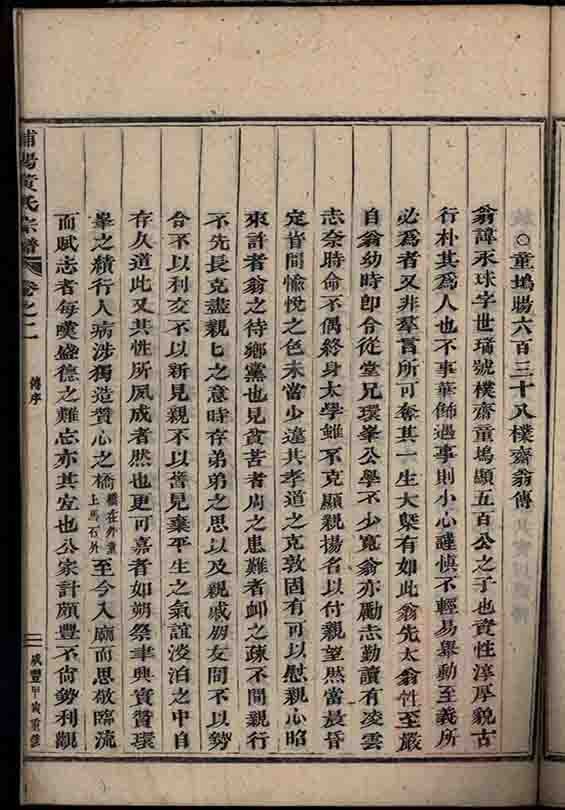 ○童塢賜六百三十八樸齋翁傳
翁諱承球字世瑞號樸齋童塢顯五百公之子也資性淳厚貌古
行朴其爲人也不事華飾遇事則小心謹愼不輕易舉動至義所
必爲者又非羣言所可奪其一生大槩有如此翁先太翁性至嚴
自翁幼時卽令從堂兄環峯公學不少寬翁亦勵志勤讀有凌雲
志奈時命不偶終身太學雖不克顯親揚名以付親望然當晨昏
定省間愉悅之色未嘗少違其孝道之克敦固有可以慰親心昭
來許者翁之待鄉黨也見貧苦者周之患難者卹之疎不間親行
不先長克盡親匕之意時存弟弟之思以及親戚朋友間不以勢
合不以利交不以新見親不以舊見棄平生之氣誼淡泊之中自
存久道此又其性所夙成者然也更可嘉者如朔祭聿興實贊環
峯之績行人病涉獨造贊心之橋橋在外童上馬石外至今入廟而思敬臨流
而賦志者每嘆盛德之難忘亦其宜也公家計頗豐不尙勢利觀
浦陽黃氏宗譜 卷之二 傳序 二 咸豐甲寅重修